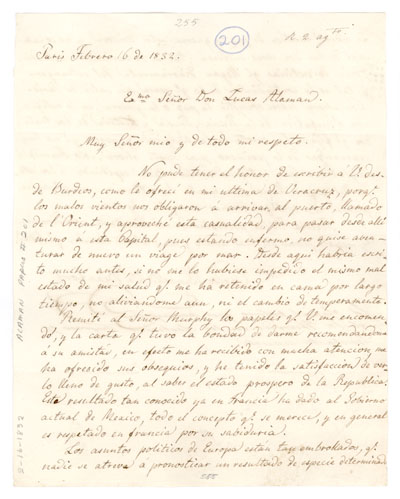 255
201
R. 2 agto.
Paris Febrero 16 de 1832.
Exmo Señor Don Lucas Alaman.
Muy Señor mio y de todo mi respeto.
No pude tener el honor de escribir á U. des-
de Burdeos, como lo ofrecí en mi ultima de Veracruz, porq.e
los malos vientos nos obligaron á arrivar, al puerto, llamado
de l'Orient, y aproveché esta casualidad, para pasar desde alli
mismo a esta Capital, pues estando enfermo, no quise aven-
turar de nuevo un viage por mar. Desde aqui habria escri-
to mucho antes, si no me lo hubiese impedido el mismo mal
estado de mi salud q.e me ha retenido en cama por largo
tiempo, no aliviandome aun, ni el cambio de temperamento.
Remití al Señor Murphy los papeles q.e U. me encomen-
dó, y la carta q.e tuvo la bondad de darme recomendandome
á su amistad, en efecto me ha recibido con mucha atencion, me
ha ofresido sus obsequios, y he tenido la satisfaccion de ver-
lo lleno de gusto, al saber el estado prospero de la Republica.
Este resultado tan conocido ya en francia ha dado al Gobierno
actual de Mexico, todo el concepto q.e se merece, y en general
es respetado en francia por su sabiduria.
Los asuntos politicos de Europa estan tan embrollados, q.e
nadie se atreve a pronosticar un resultado de especie determinada
255
ALAMAN PAPERS II-201
2-16-1832